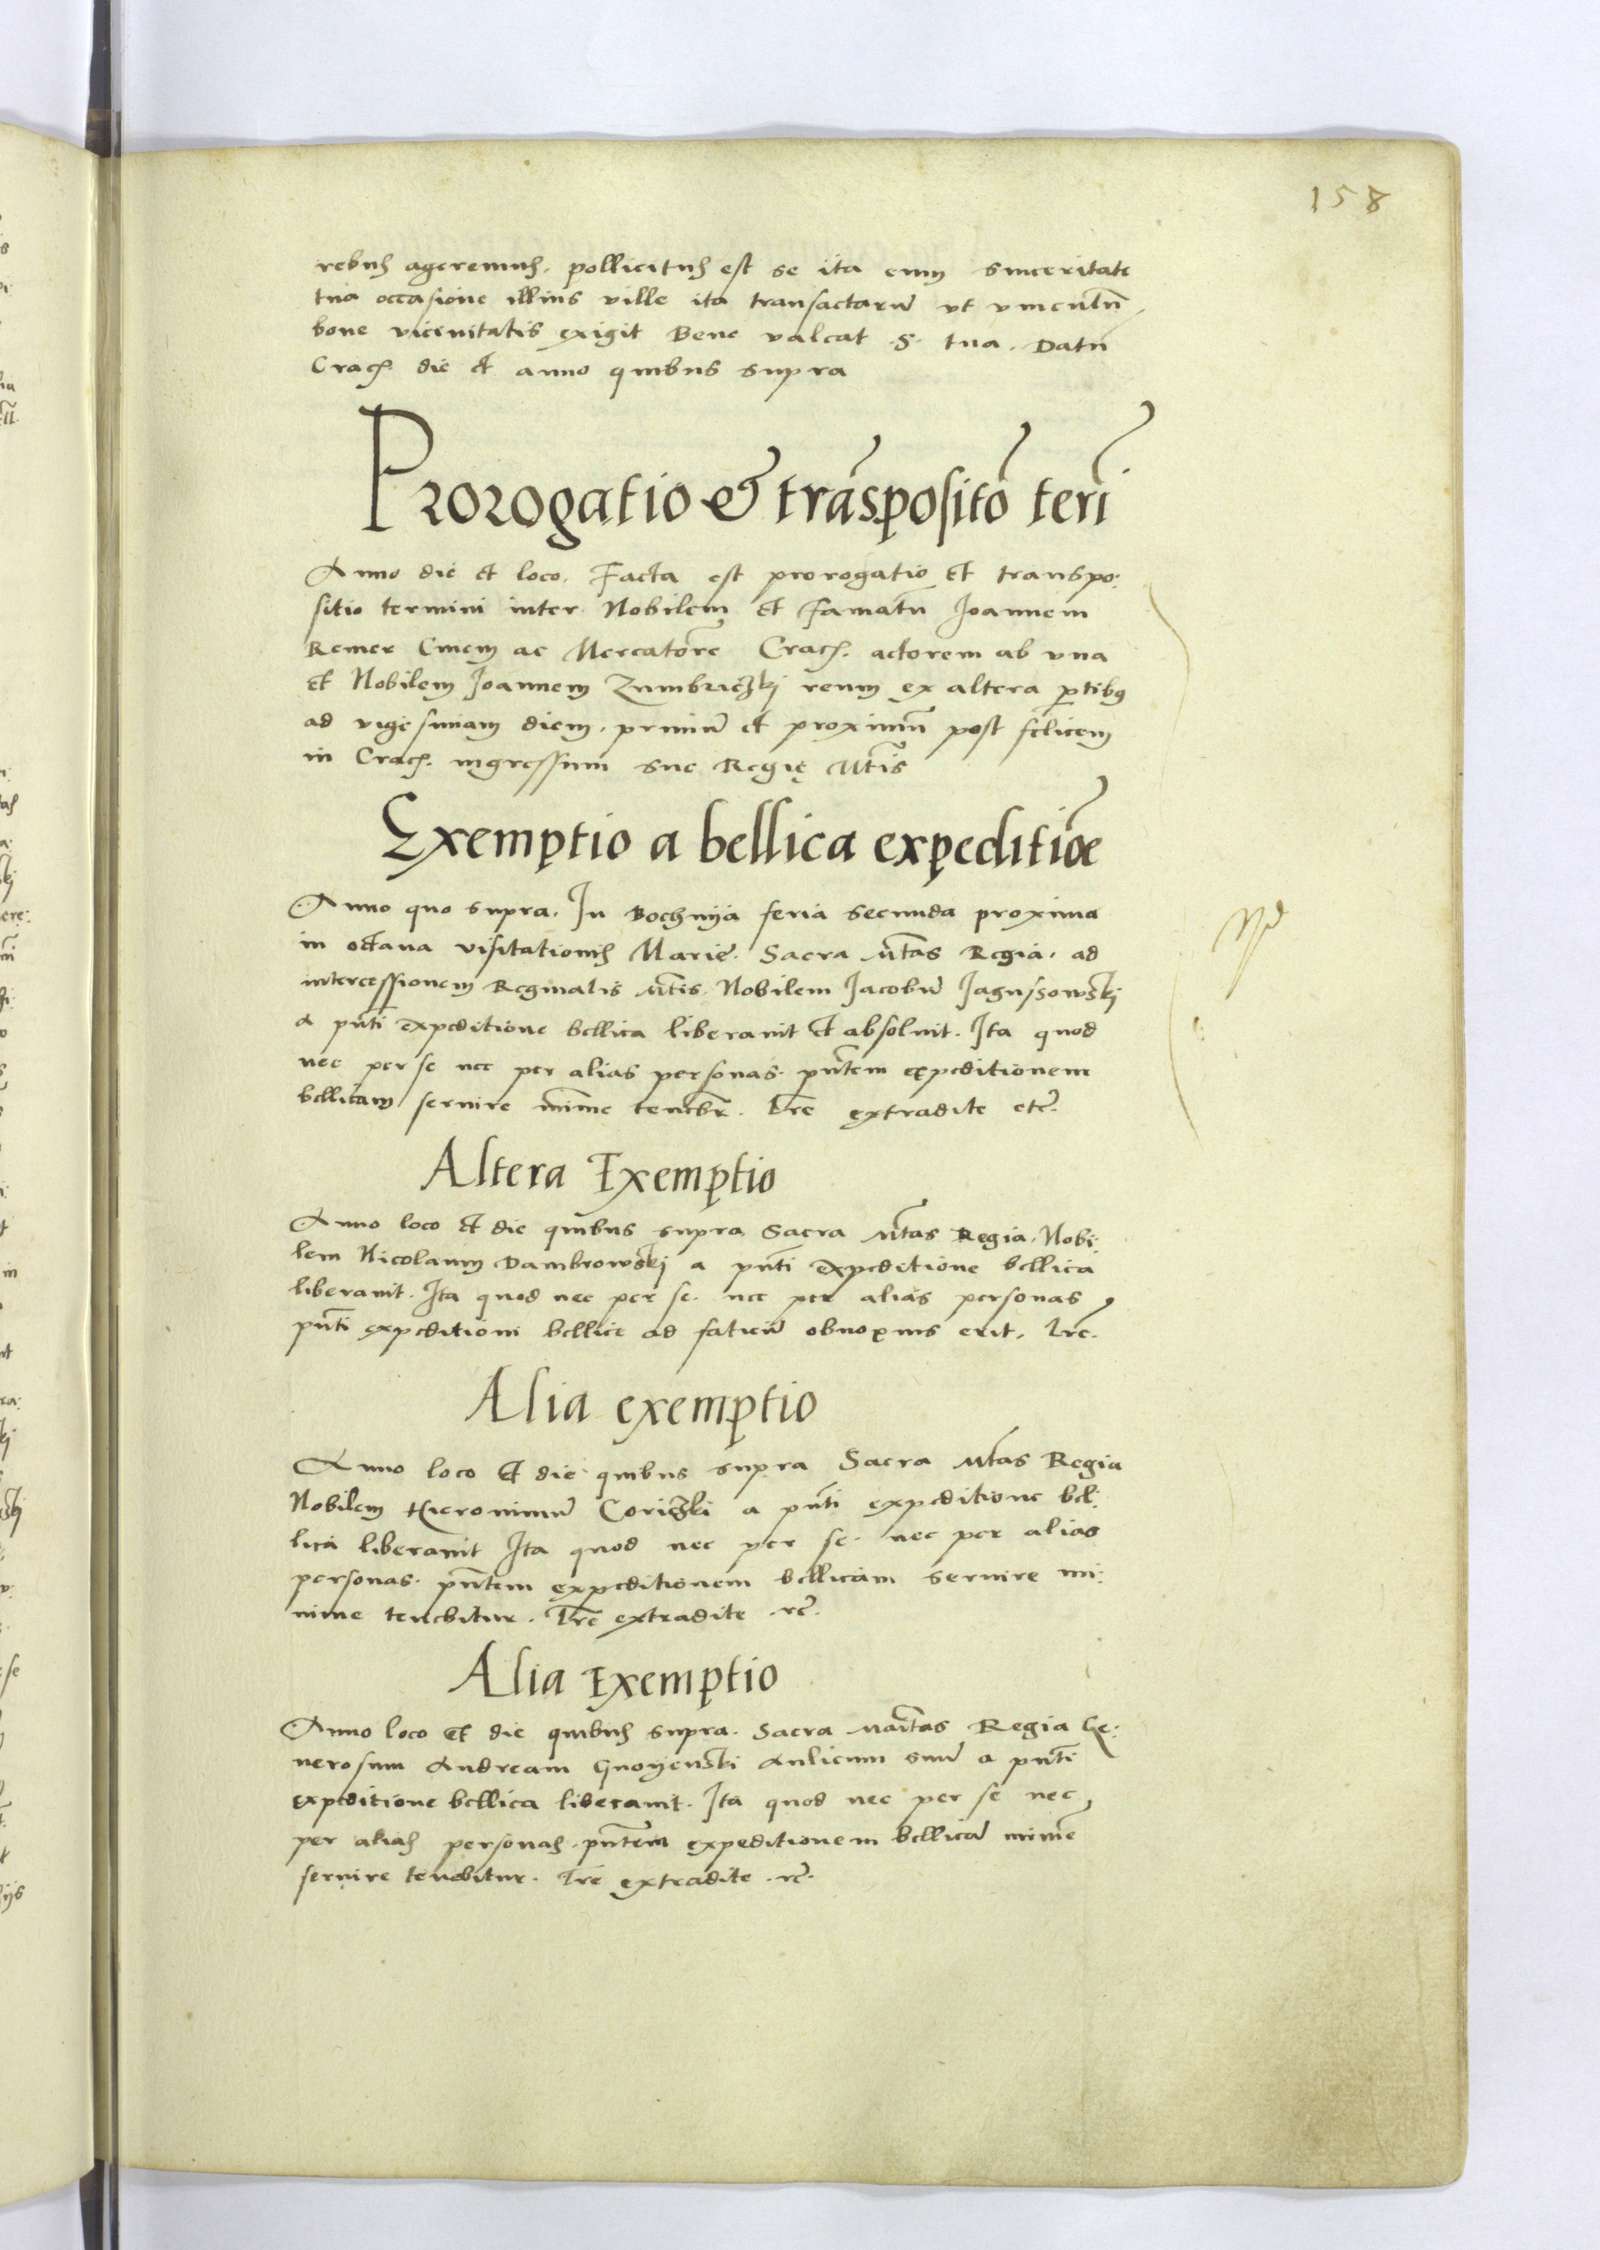 158
rebus ageremus. pollicitus est se ita cum sinceritate
tua occasione illius ville ita transacturũ ut vinculũ
bone vicinitatis exigit Bene valeat S. tua. Datũ
Crac. die et anno quibus supra
Prorogatio & trãspositõ terĩ
Anno die et loco. Facta est prorogatio et transpo:
sitio termini inter Nobilem et famatũ Joannem
Remer Civem ac Mercatorẽ Crac. actorem ab una
et Nobilem Joannem Zumbrziczki reum ex altera ptibus
ad vigesimam diem. primũ et proximũ post felicem
in Crac. ingressum sue Regię Mtis
Exemptio a bellica expeditiõe
Anno quo supra. In Bochnya feria secunda proxima
in octava visitationis Marie. Sacra Mtas Regia. ad
intercessionem Reginalis Mtis. Nobilem Jacobũ Jagussowski
a pñti expeditione bellica liberavit et absolvit. Ita quod
nec per se nec per alias personas. pñtem expeditionem
bellicam servire minime tenebr. Lrẽ extradite etc.
Altera Exemptio
Anno loco et die quibus supra Sacra Mtas Regia. Nobi:
lem Nicolaum Dambrowski a pñti expeditione bellica
liberavit. Ita quod nec per se. nec per alias personas
pñti expeditioni bellice ad faciẽũ obnoxius erit. Lrẽ.
Alia exemptio
Anno loco et die quibus supra Sacra Mtas Regia
Nobilem Hieronimũ Coriczki a pñti expeditione bel:
lica liberavit Ita quod nec per se. nec per alias
personas. pñtem expeditionem bellicam servire mi:
nime tenebitur. Lrẽ extradite .rc.
Alia Exemptio
Anno loco et die quibus supra. Sacra Maitas Regia Ge:
nerosum Andream Gnoyenski Aulicum suũ a pñti
expeditione bellica liberavit. Ita quod nec per se nec
per alias personas. pñtem expeditionem bellicã minime
servire tenebitur. Lrẽ extradite .rc.